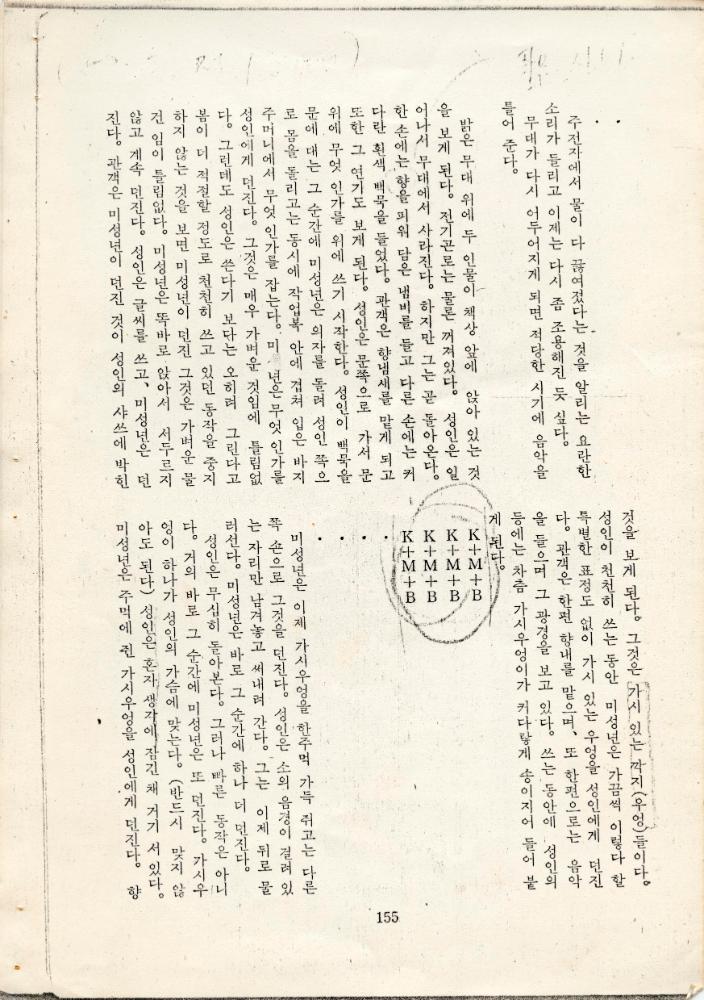 주전자에서 물이 다 끓여졌다는 것을 알리는 요란한
소리가 들리고 이제는 다시 좀 조용해진 듯 싶다.
무대가 다시 어두어지게 되면 적당한 시기에 음악을
틀어 준다.
밝은 무대 위에 두 인물이 책상 앞에 앉아 있는 것
을 보게 된다. 전기곤로는 물론 꺼져있다. 성인은 일
어나서 무대에서 사라진다. 하지만 그는 곧 돌아온다.
한 손에는 향을 피워 담은 냄비를 들고 다른 손에는 커
다란 흰색 백묵을 들었다. 관객은 향냄새를 맡게 되고
또한 그 연기도 보게 된다. 성인은 문쪽으로 가서 문
위에 무엇 인가를 위에 쓰기 시작한다. 성인이 백묵을
문에 대는 그 순간에 미성년은 의자를 돌려 성인 쪽으
로 몸을 돌리고는 동시에 작업복 안에 겹쳐 입은 바지
주머니에서 무엇 인가를 잡는다. 미 년은 무엇 인가를
성인에게 던진다. 그것은 매우 가벼운 것임에 틀림없
다. 그런데도 성인은 쓴다기 보단는 오히려 그린다고
봄이 더 적절할 정도로 천천히 쓰고 있던 동작을 중지
하지 않는 것을 보면 미성년이 던진 그것은 가벼운 물
건 임이 틀림없다. 미성년은 똑바로 앉아서 서두르지
않고 계속 던진다. 성인은 글씨를 쓰고, 미성년은 던
진다. 관객은 미성년이 던진 것이 성인의 샤쓰에 박힌
것을 보게 된다. 그것은 가시 있는 깍지(우엉)들이다.
성인이 천천히 쓰는 동안 미성년은 가끔씩 이렇다 할
특별한 표정도 없이 가시 있는 우엉을 성인에게 던진
다. 관객은 한편 향내를 맡으며, 또 한편으로는 음악
을 들으며 그 광경을 보고 있다. 쓰는 동안에 성인의
등에는 차츰 가시우엉이가 커다랗게 송이지어 들어 붙
게 된다.
K+M+B
K+M+B
K+M+B
K+M+B
미성년은 이제 가시우엉을 한주먹 가득 쥐고는 다른
쪽 손으로 그것을 던진다. 성인은 소의 음경이 걸려 있
는 자리만 남겨놓고 써내려 간다. 그는 이제 뒤로 물
러선다. 미성년은 바로 그 순간에 하나 더 던진다.
성인은 무심히 돌아본다. 그러나 빠른 동작은 아니
다. 거의 바로 그 순간에 미성년은 또 던진다. 가시우
엉이 하나가 성인의 가슴에 맞는다. (반드시 맞지 않
아도 된다) 성인은 혼자 생각에 잠긴 채 거기 서 있다.
미성년은 주먹에 쥔 가시우엉을 성인에게 던진다. 향
155